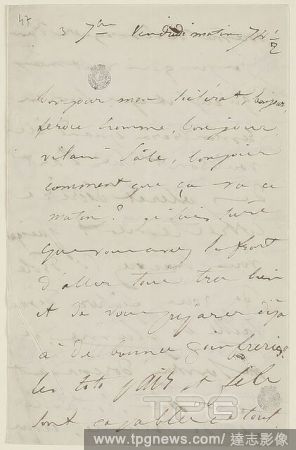 47
3 7bre Vendredi matin 7h ½
bonjour mon scélérat, bonjour
féroce homme, bonjour
vilain sale, bonjour
comment que ça va ce
matin? je suis sûre
que vous avez le front
d'aller tous très bien
et de vous préparer déjà
à de bonnes
les toto
sont capables de tout.
TPG
NEWS
www.tpgnews.com / 達志影像